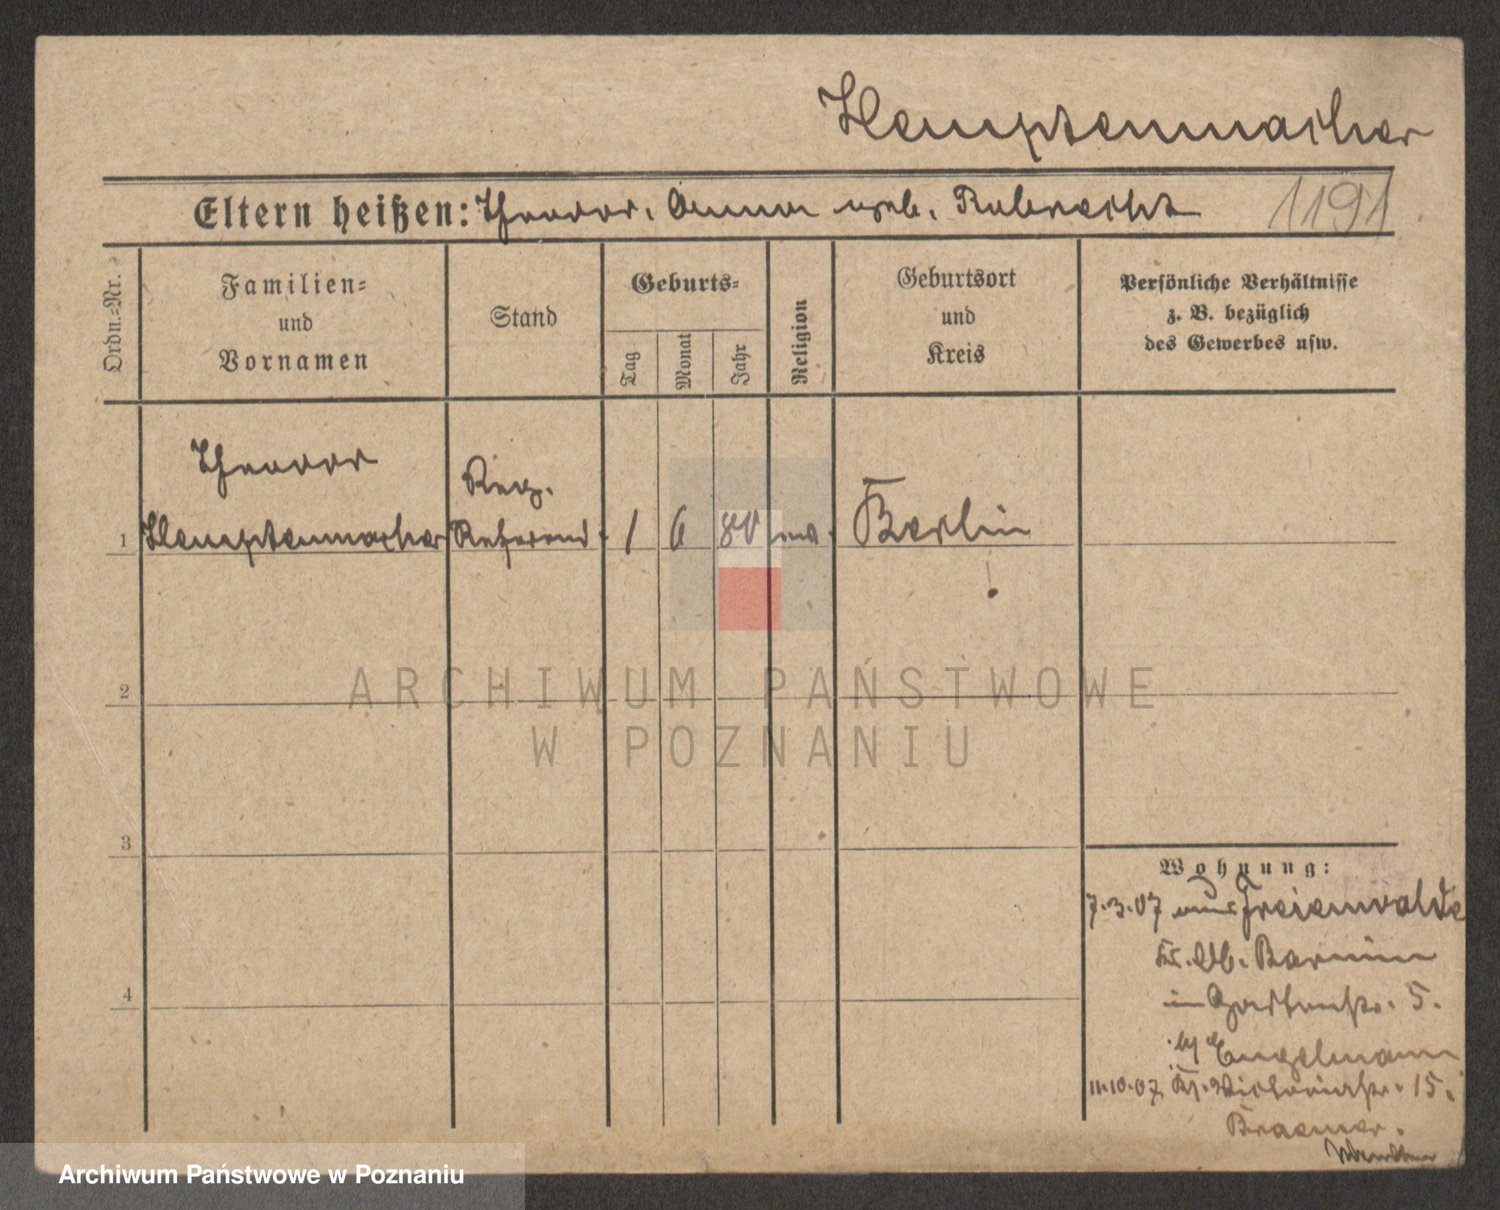 Hemptenmacher
Eltern heißen: Theodor. Anna geb. Rubrecht
1191
Ordn.=Nr.
Familien=
und
Vornamen
Stand
Geburts=
Tag
Monat
Jahr
Religion
Geburtsort
und
Kreis
Persönliche Verhältnisse
z. B. bezüglich
des Gewerbes usw.
Theodor
Reg.
1 Hemptenmacher Referend. 1 6 80 Berlin
2
3
4
Wohnung:
7.3.07 aus Freienwalde
Kr. Ob. Barnim
in Gartenstr. 5.
Engelmann
11.10.07 Victoriastr. 15.
ARCHIWUM PAŃSTWOWE
W POZNANIU
Archiwum Państwowe w Poznaniu